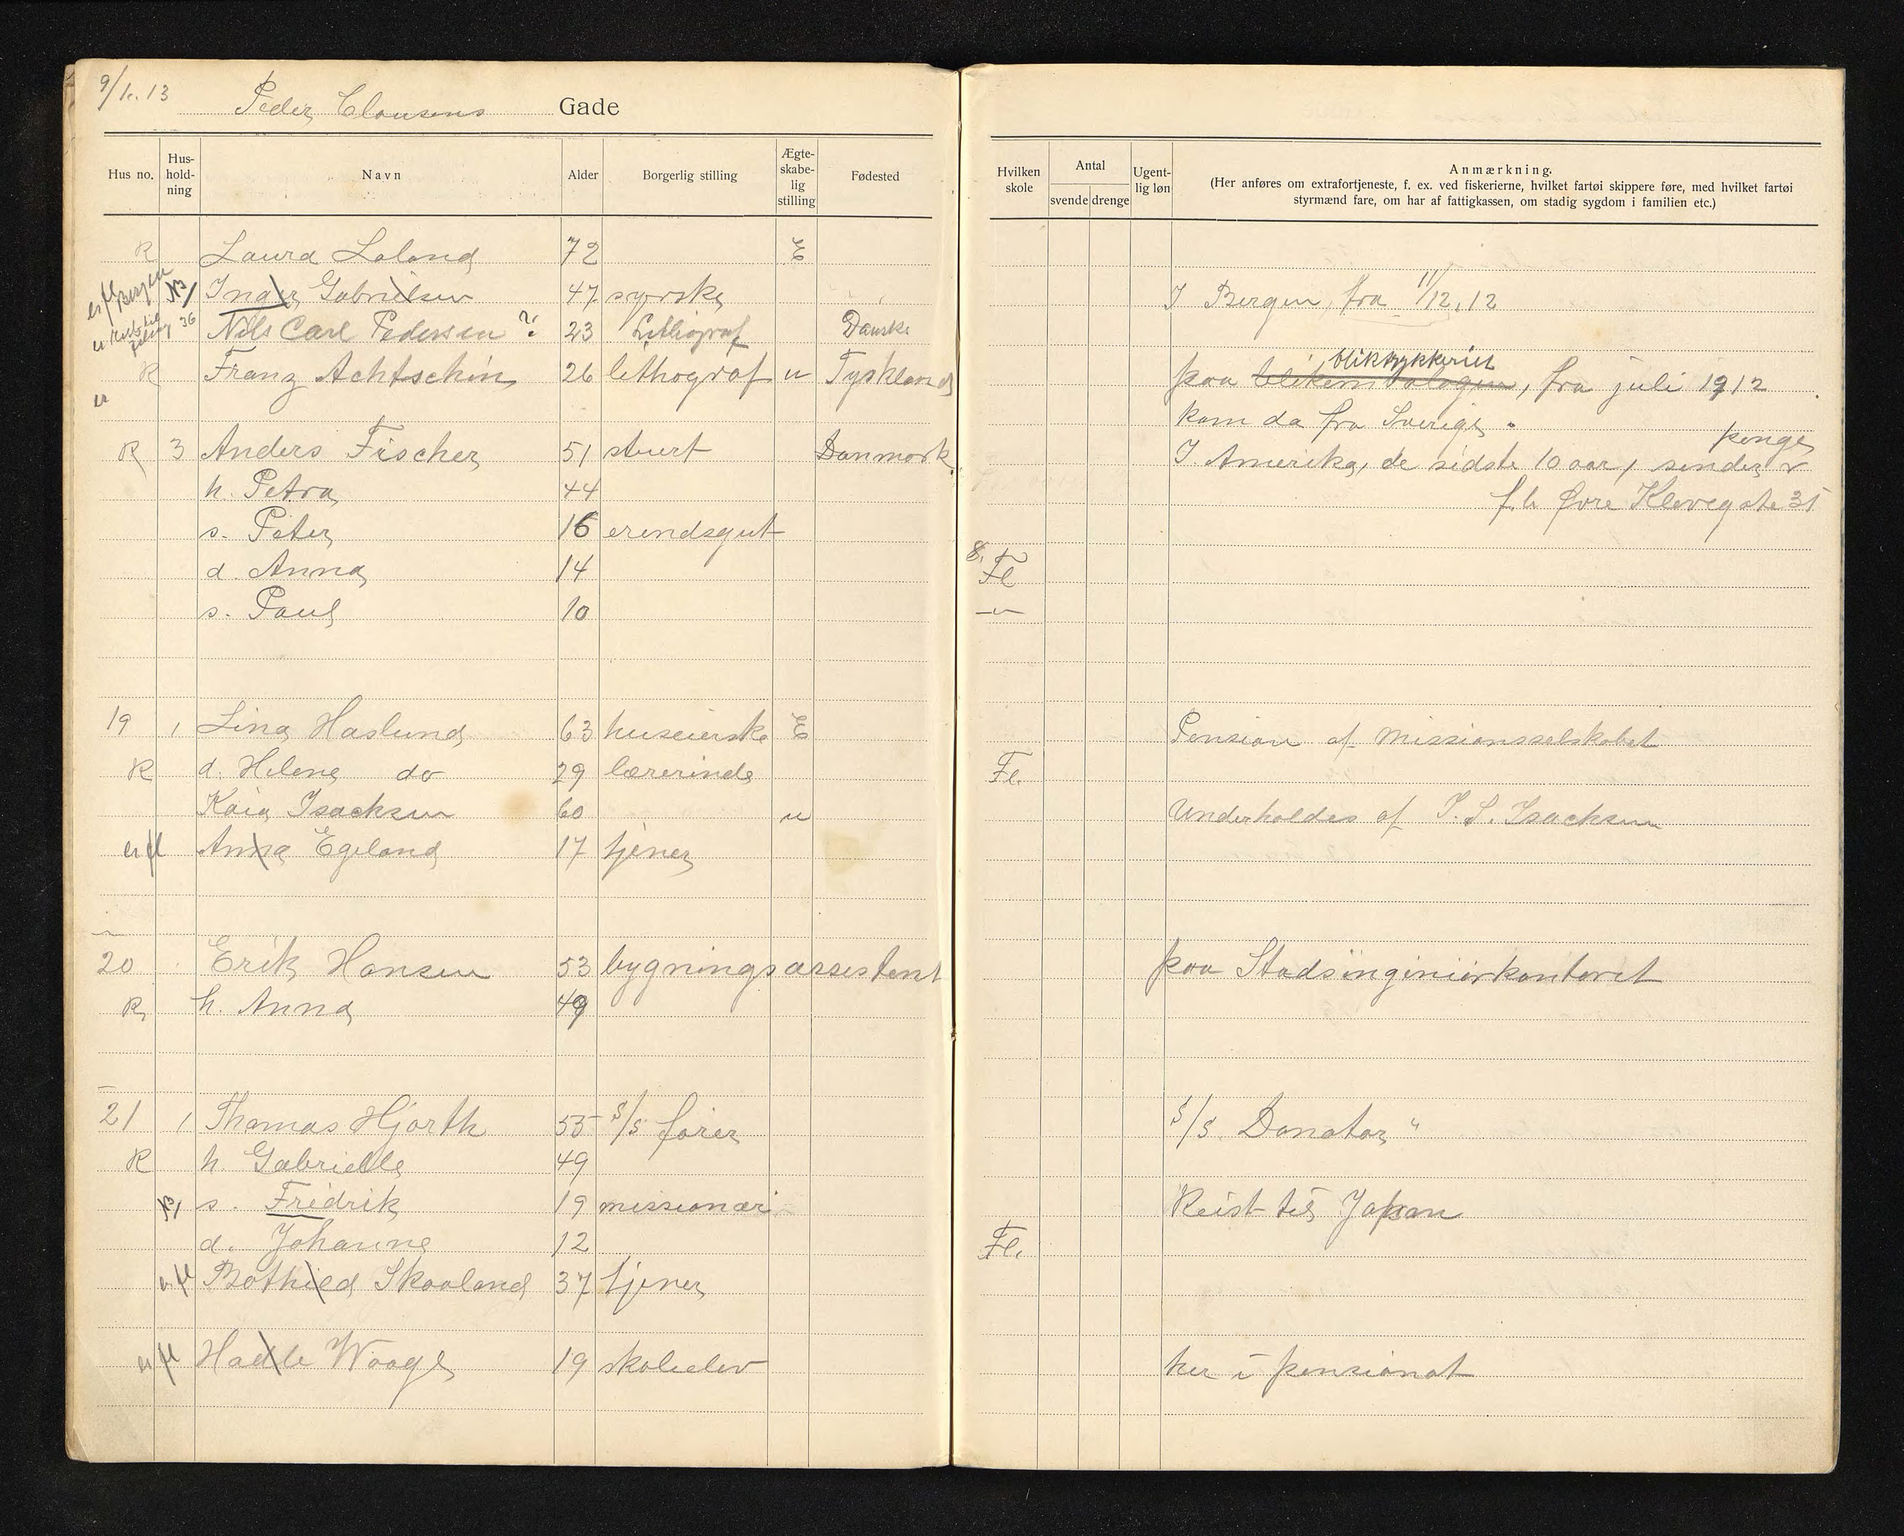 9/1. 13 Peder Clausens Gade
Hus no. Hus-hold-ning Navn Alder Borgerlig stilling Ægte-skabe-lig stilling Fødested Hvilken skole Antal svende drenge Ugent-lig løn Anmærkning.
(Her anføres om extrafortjeneste, f. ex. ved fiskerierne, hvilket fartøi skippere føre, med hvilket fartøi
styrmænd fare, om har af fattigkassen, om stadig sygdom i familien etc.)
R Laura Loland 72 E
er fl Bergen Inger Gabrielsen 47 syerske I Bergen, fra 11/12.12
er 36 Nils Carl Pedersen ? 23 Lithograf Danske
R Franz Achtschin 26 lethograf u Tyskland paa bliktrykkeriet, fra juli 1912
er kom da fra Sverige.
R 3 Anders Fischer 51 stuert Danmark I Amerika, de sidste 10 aar, sender penge
h. Petra 44 f.b. Øvre Klevegate 31
s. Peter 16 erendsgut
d. Anna 14 8. Fl
s. Paul 10 —"—
19 1 Lina Haslund 63 huseierske E Pension af Missionsselskabet
R d. Helene do 29 lærerinde Fl.
Kaia Isachsen 60 u Underholdes af I. S. Isachsen
er fl Anna Egeland 17 tjener
20 Erik Hansen 53 bygningsassistent paa Stadsingeniørkontoret
R h. Anna 49
21 1 Thomas Hjorth 55 S/S fører S/S. Donator"
R h. Gabrielle 49
s. Fridrik 19 missionær Reist til Japan
d. Johanne 12 Fl.
er fl Bothild Skaaland 37 tjener
er fl Hadle Waage 19 skoleelev her i pensionat